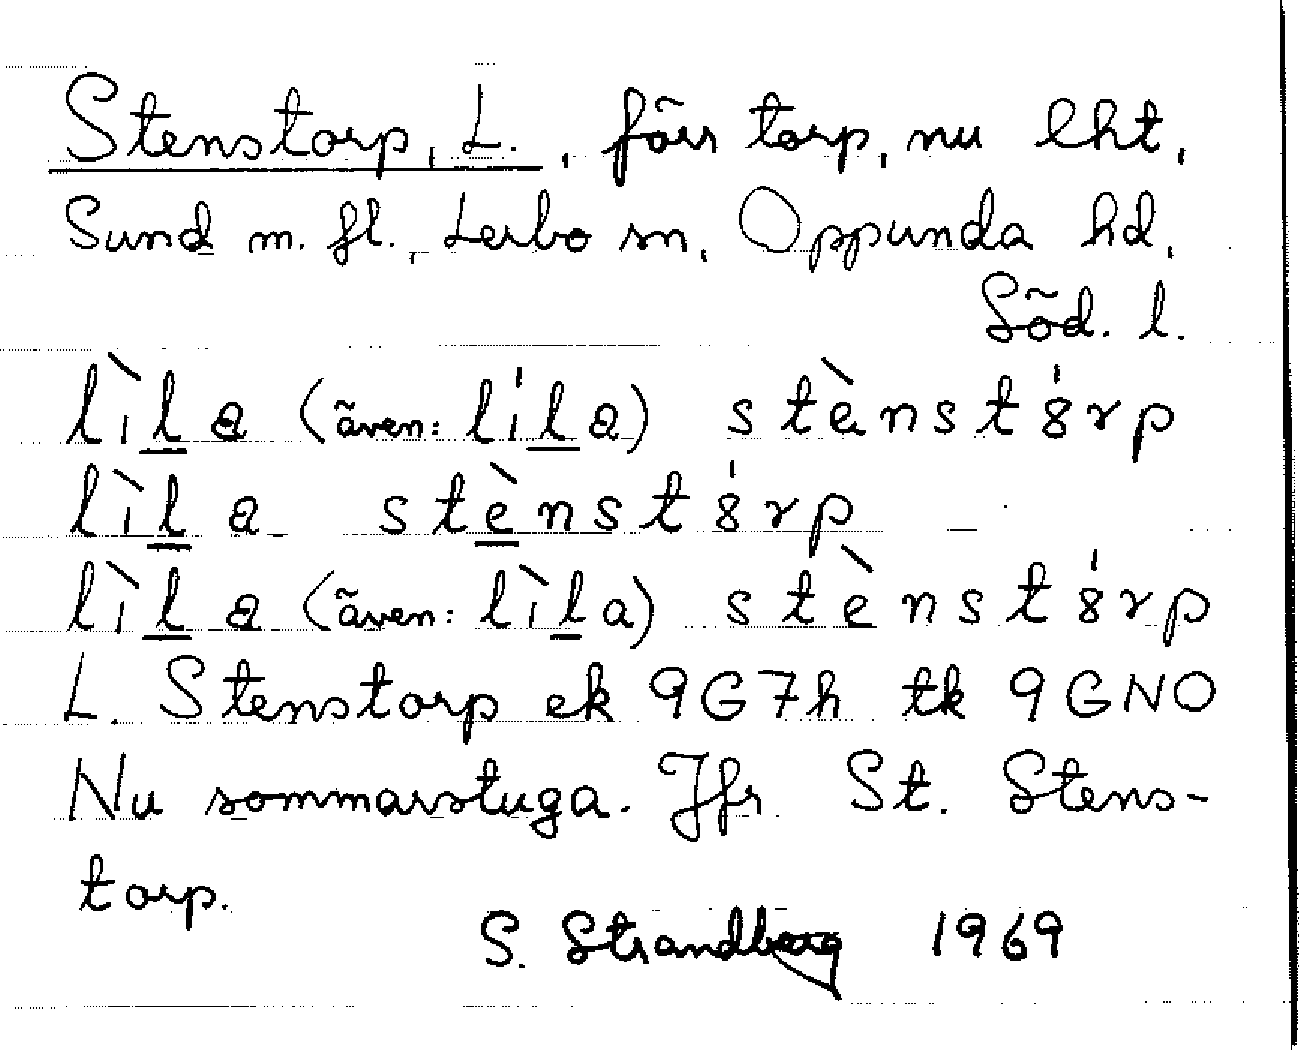 Stenstorp, L., förr torp, nu lht,
Sund m. fl., Lerbo sn, Oppunda hd,
Söd. l.
lìla (även: líla) stènstȣ́rp
lìla stènstȣ́rp
lìla (även: lìla) stènstȣ́rp
L. Stenstorp ek 9G7h tk 9GNO
Nu sommarstuga. Jfr St. Stens-
torp.
S. Strandberg 1969